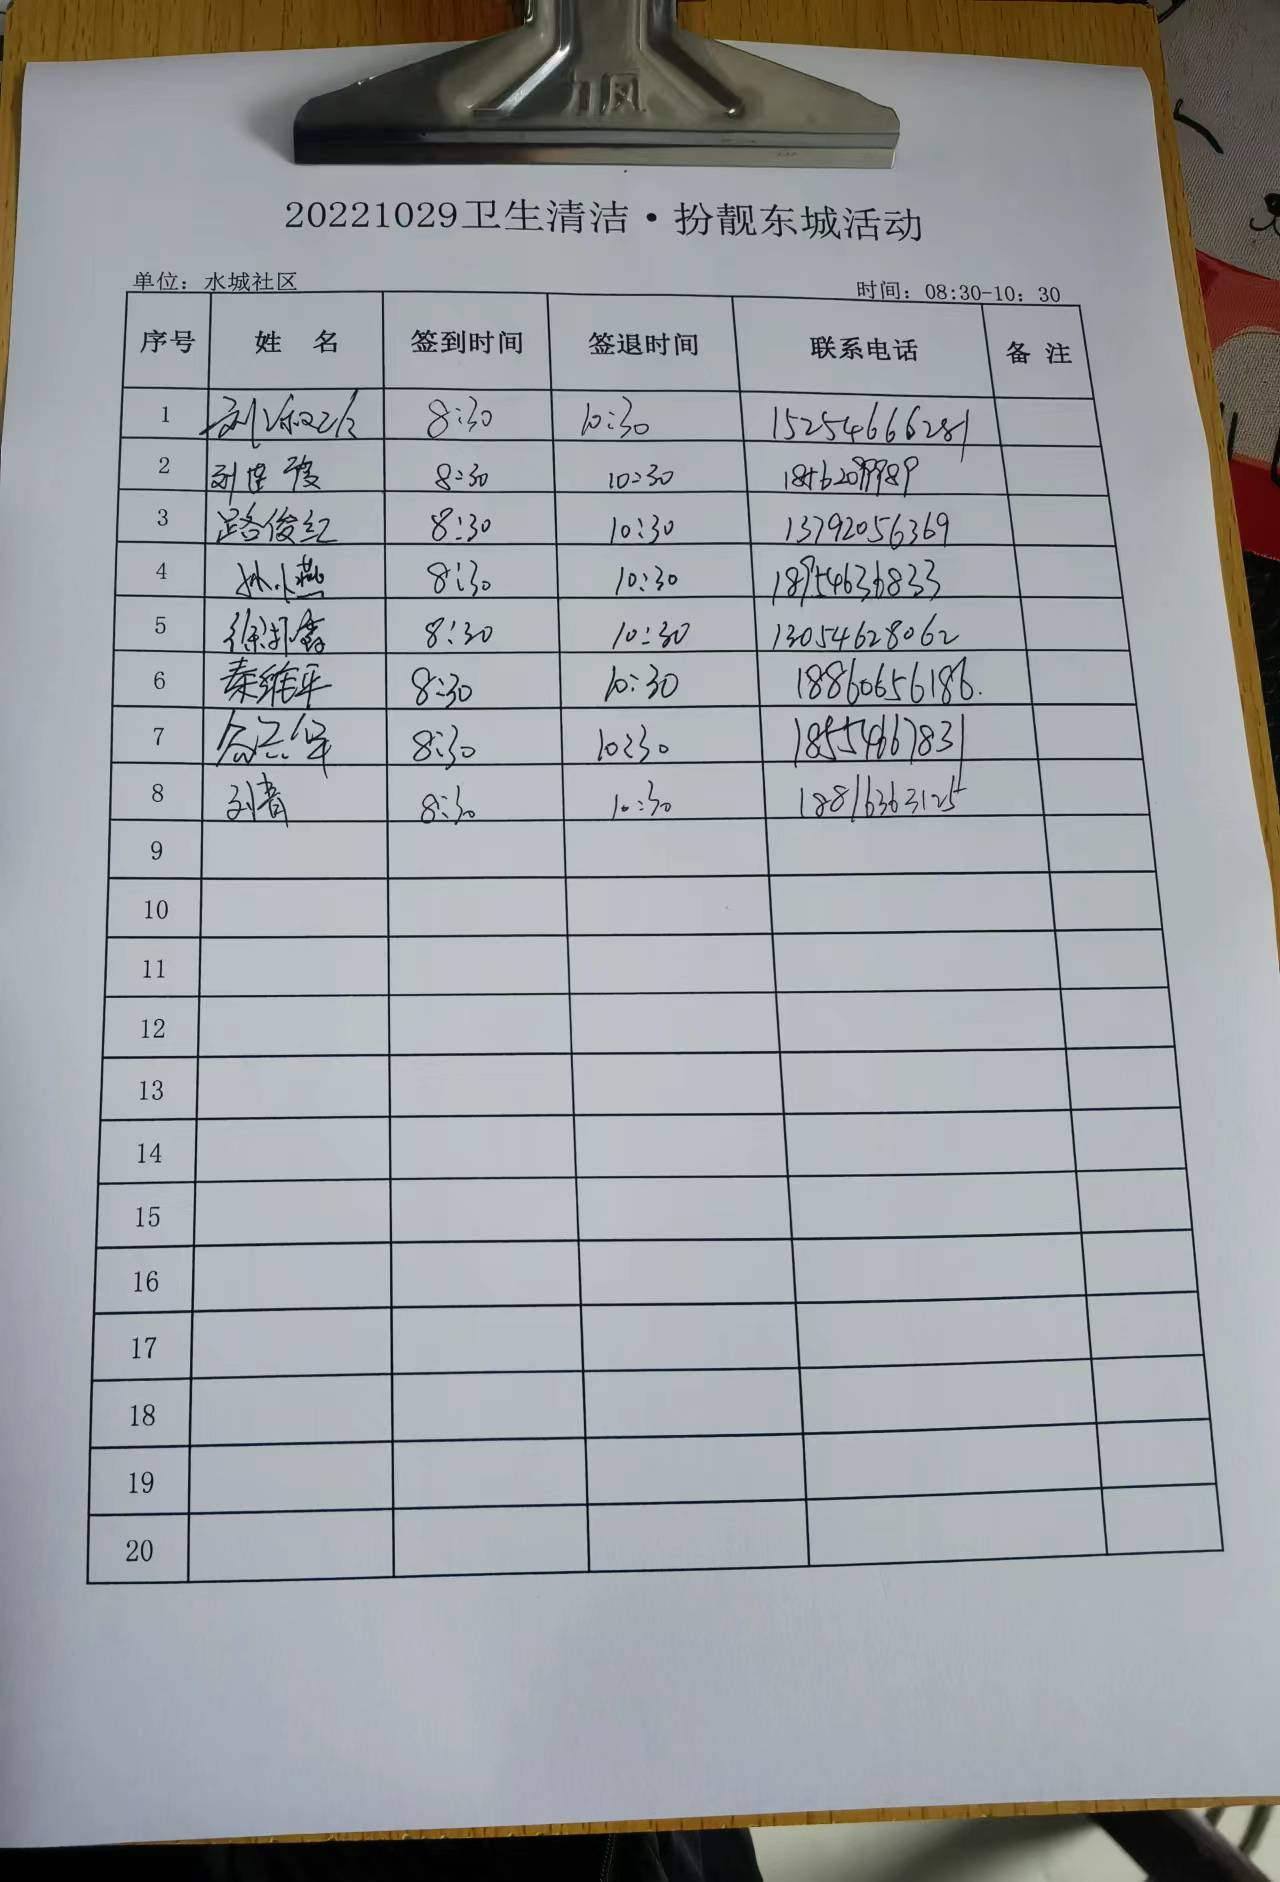 20221029卫生清洁·扮靓东城活动
单位：水城社区 时间：08:30-10：30
序号 姓 名 签到时间 签退时间 联系电话 备 注
1 8:30 10:30 15254666281
2 8:30 10:30
3 路俊红 8:30 10:30 13792056369
4 孙小燕 8:30 10:30 18954636833
5 8:30 10:30 13054628062
6 秦维平 8:30 10:30 18860656186.
7 8:30 10:30 18554667831
8 刘青 8:30 10:30 18816363125
9
10
11
12
13
14
15
16
17
18
19
20